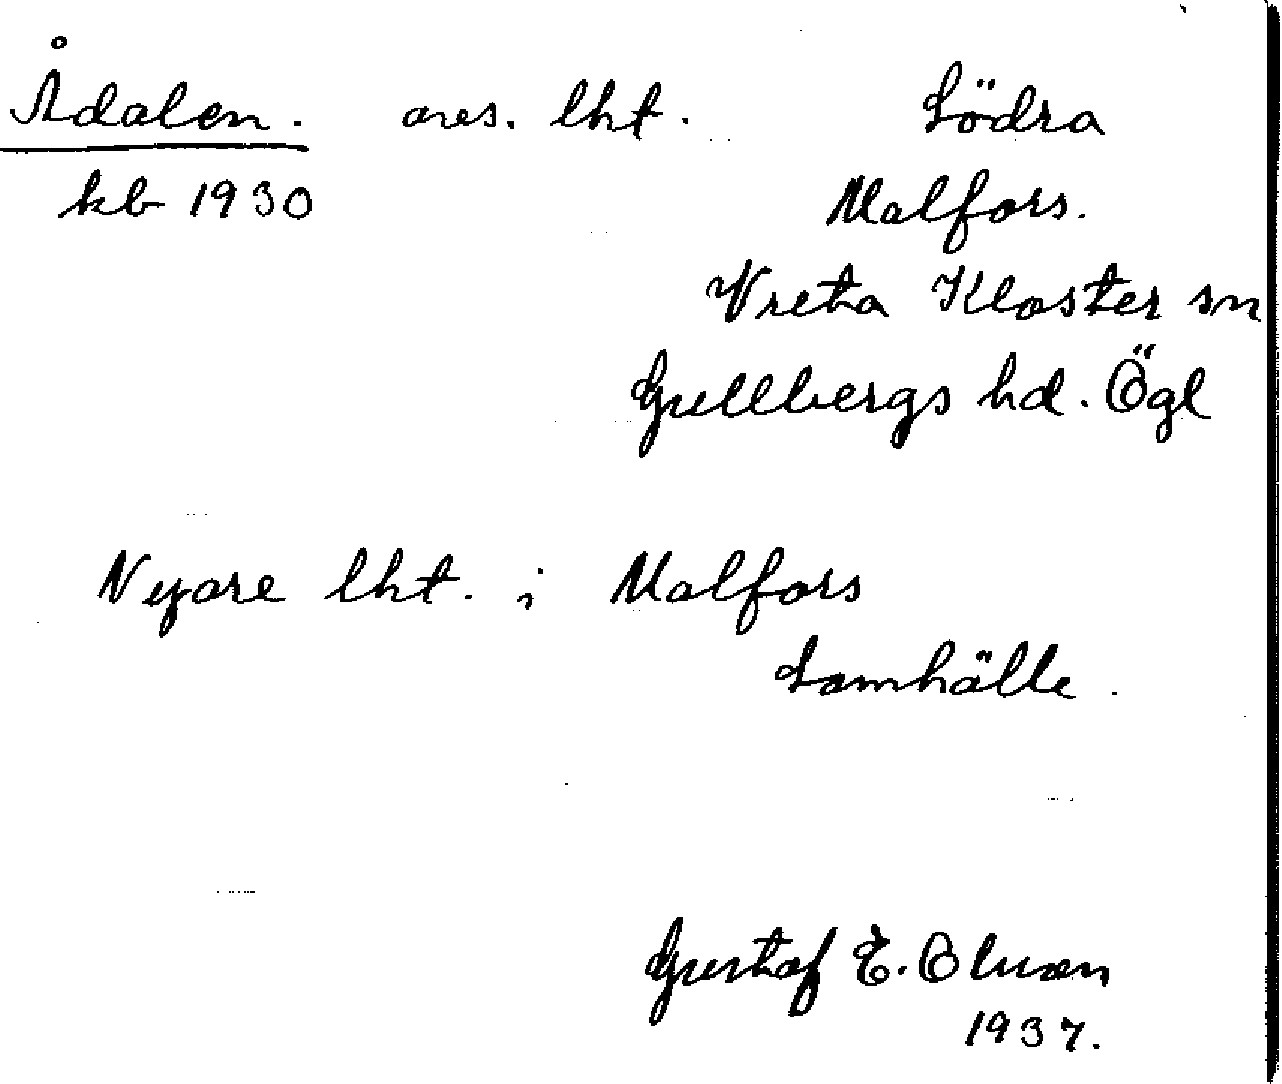 Ådalen. avs. lht. Södra
kb 1930 Malfors.
Vreta Kloster sn
Gullbergs hd. Ögl
Nyare lht. i Malfors
Samhälle.
Gustaf E.
1937.